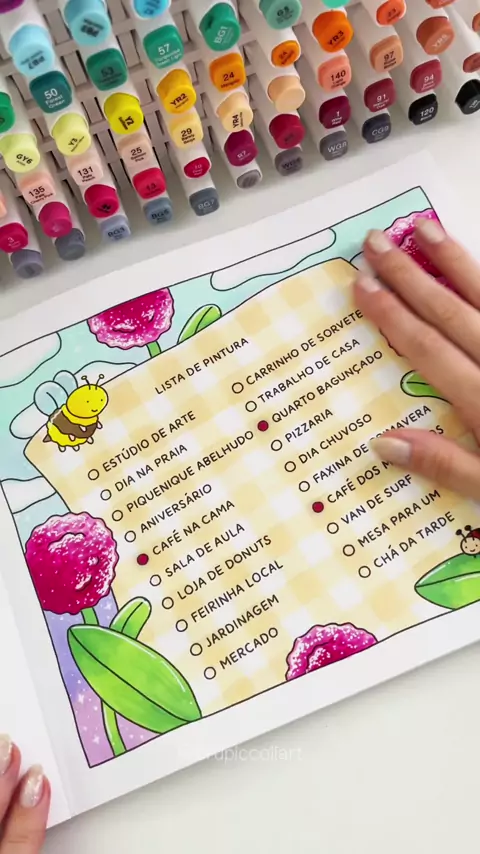 50
57
BG7
53
24
YR3
140
97
YR2
29
YR4
94
GY6
25
91
135
131
13
87
WG8
CG9
120
BG7
3
BG5
LISTA DE PINTURA
ESTÚDIO DE ARTE
DIA NA PRAIA
PIQUENIQUE ABELHUDO
ANIVERSÁRIO
CAFÉ NA CAMA
SALA DE AULA
LOJA DE DONUTS
FEIRINHA LOCAL
JARDINAGEM
MERCADO
CARRINHO DE SORVETE
TRABALHO DE CASA
QUARTO BAGUNÇADO
PIZZARIA
DIA CHUVOSO
FAXINA DE
CAFÉ DOS
VAN DE SURF
MESA PARA UM
CHÁ DA TARDE